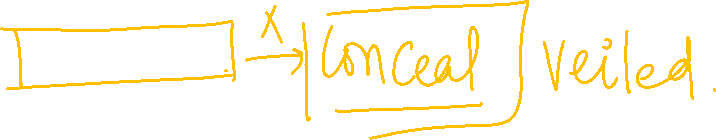 x conceal veiled.